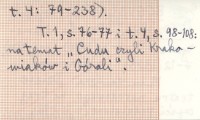 t. 4: 79-238).
T. 1, s. 76-77 i t. 4, s. 98-108:
na temat „Cudu czyli Krako-
wiaków i Górali".